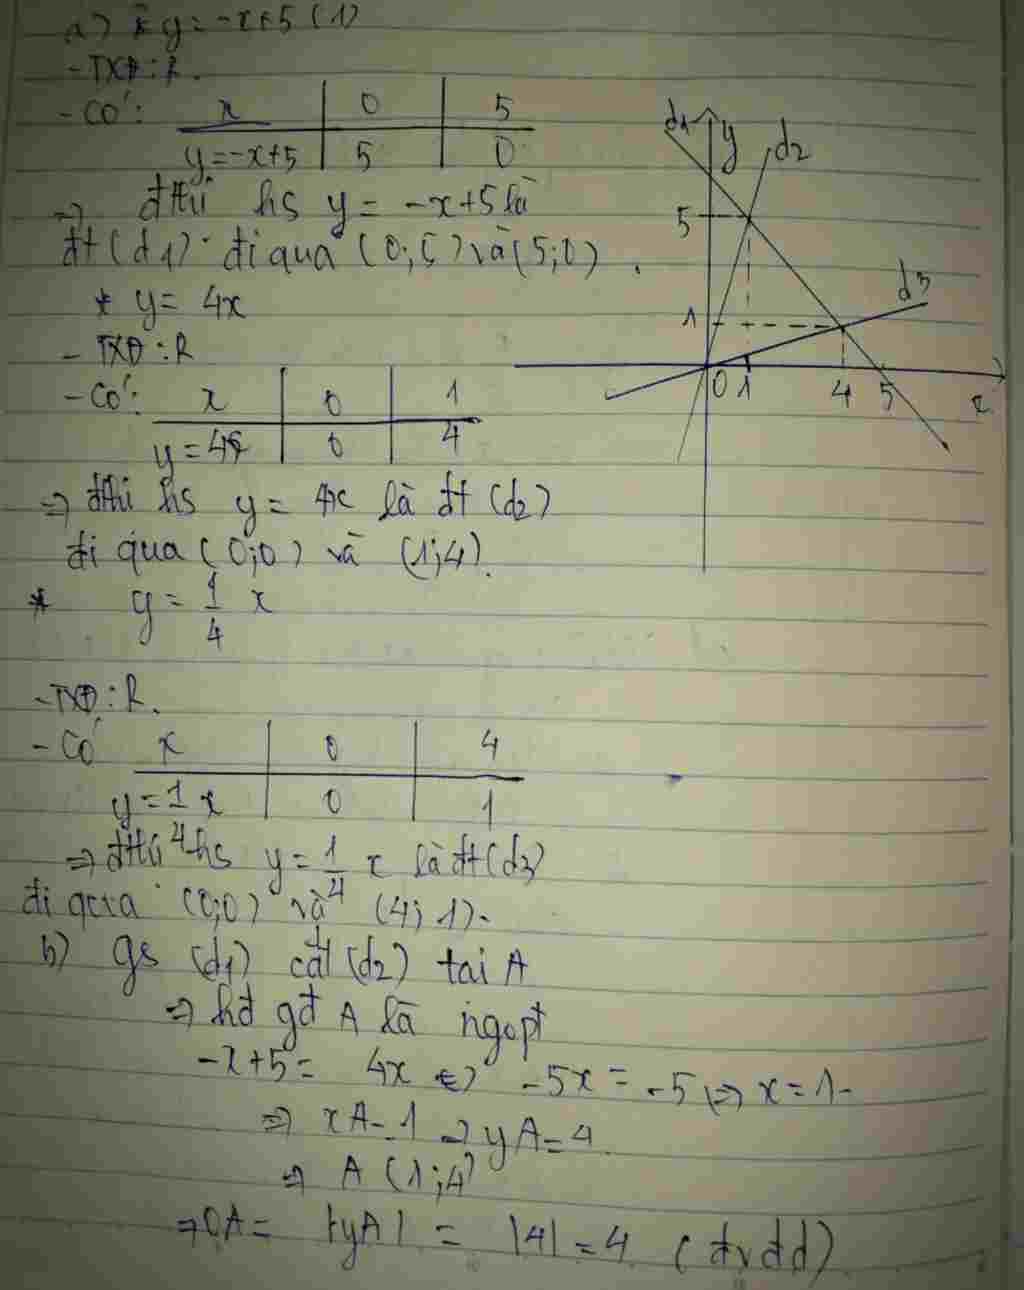 a) * y = -x+5 (1)
- TXĐ : R.
- Có: x | 0 | 5
y = -x+5 | 5 | 0
=> đthị hs y = -x+5 là
đt (d1) đi qua (0;5) và (5;0).
* y = 4x
- TXĐ : R
- Có: x | 0 | 1
y = 4x | 0 | 4
=> đthị hs y = 4x là đt (d2)
đi qua (0;0) và (1;4).
* y = 1/4 x
- TXĐ : R.
- Có x | 0 | 4
y = 1/4 x | 0 | 1
=> đthị hs y = 1/4 x là đt (d3)
đi qua (0;0) và (4; 1).
b) gs (d1) cắt (d2) tai A
=> hđ gđ A là ngopt
-x+5 = 4x <=> -5x = -5 <=> x = 1
=> xA = 1 => yA = 4
=> A (1;4)
=> OA = |yA| = |4| = 4 (đvđd)
d1 y d2
5
1 d3
0 1 4 5 x